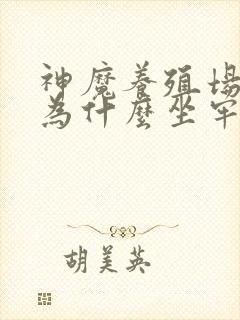 神魔養殖場
為什麼坐牢
胡美英